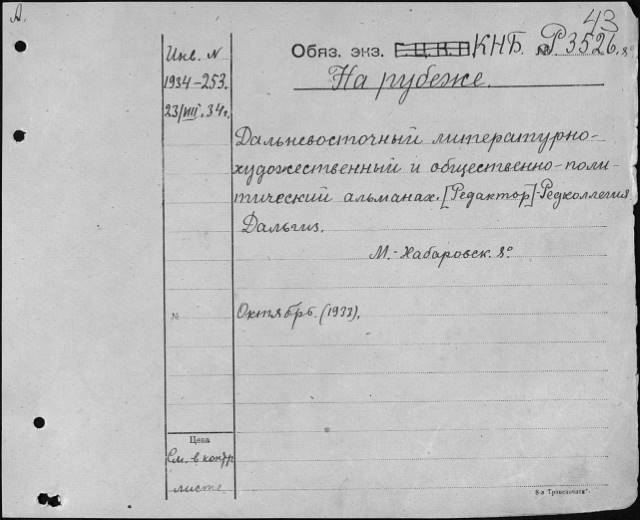 А.
43
Инв. N
1934-253.
23/VIII.34г.
Обяз. экз. Г.Ц.К.П КНБ. № Р3526.8°
На рубеже.
Дальневосточный литературно-
художественный и общественно-поли-
тический альманах. [Редактор]-Редколлегия
Дальгиз.
М.-Хабаровск. 8°.
№ Октябрь. (1933).
Цена
См. в контр
листе
8-я Транспечати".